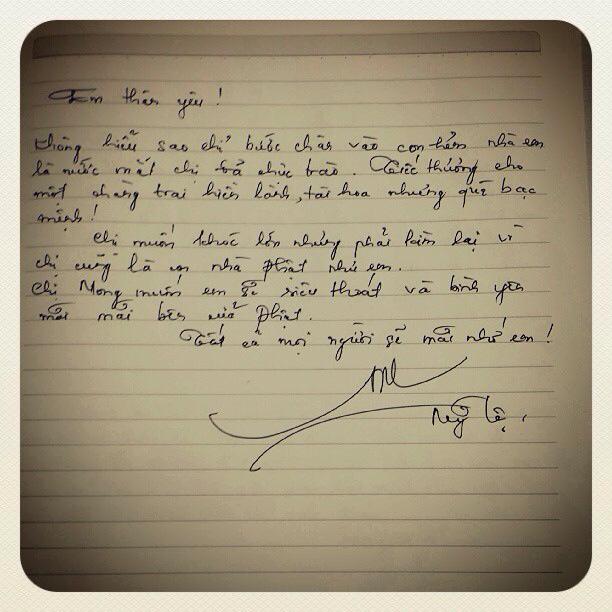 Em thân yêu !
Không hiểu sao chỉ bước chân vào con hẻm nhà em
là nước mắt chị trả chực trào. Tiếc thương cho
một chàng trai hiền lành, tài hoa nhưng quá bạc
mệnh !
Chị muốn khóc lớn nhưng phải kìm lại vì
chị cũng là con nhà Phật như em.
Chị Mong muốn em sẽ siêu thoát và bình yên
mãi mãi bên cửa Phật.
Tất cả mọi người sẽ mãi nhớ em !
Mỹ Lệ.